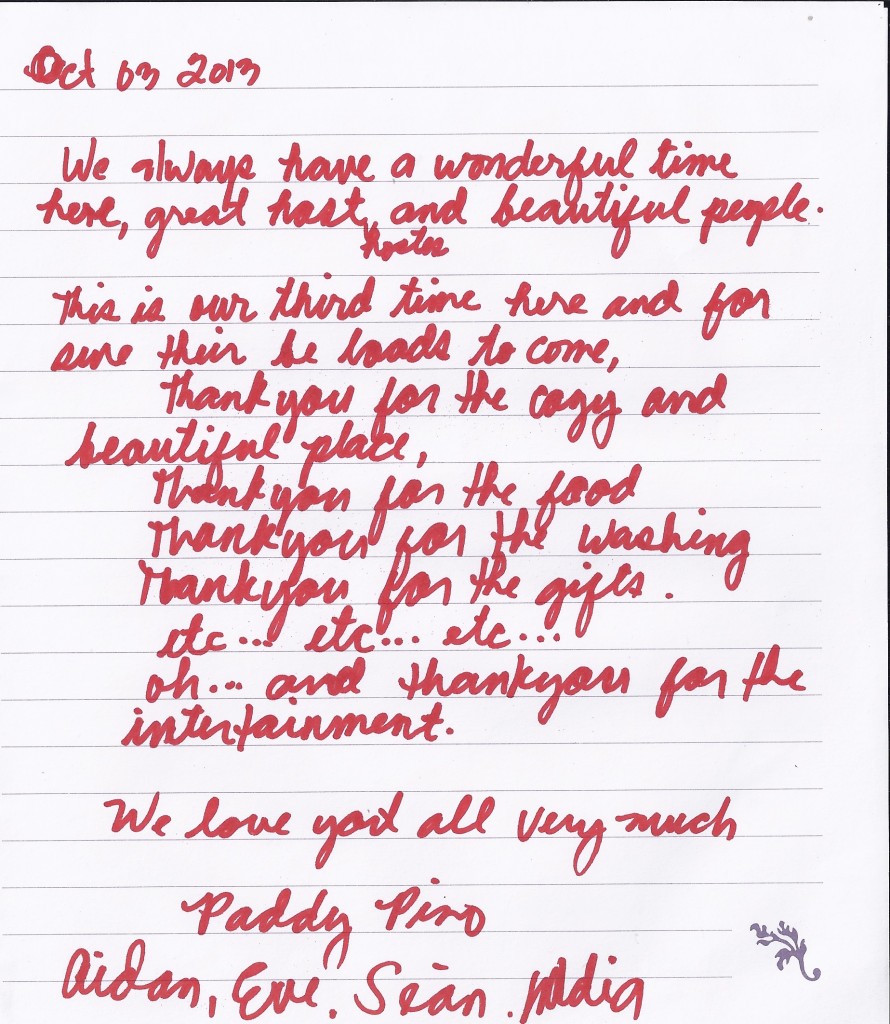 Oct 03 2013
We always have a wonderful time
here, great host, and beautiful people.
hostes
This is our third time here and for
sure their be loads to come,
Thankyou for the cozy and
beautiful place,
Thankyou for the food
Thankyou for the washing
Thankyou for the gifts.
etc... etc... etc...
oh... and thankyou for the
intertainment.
We love you all very much
Paddy Pino
Aidan, Eve, Sean.